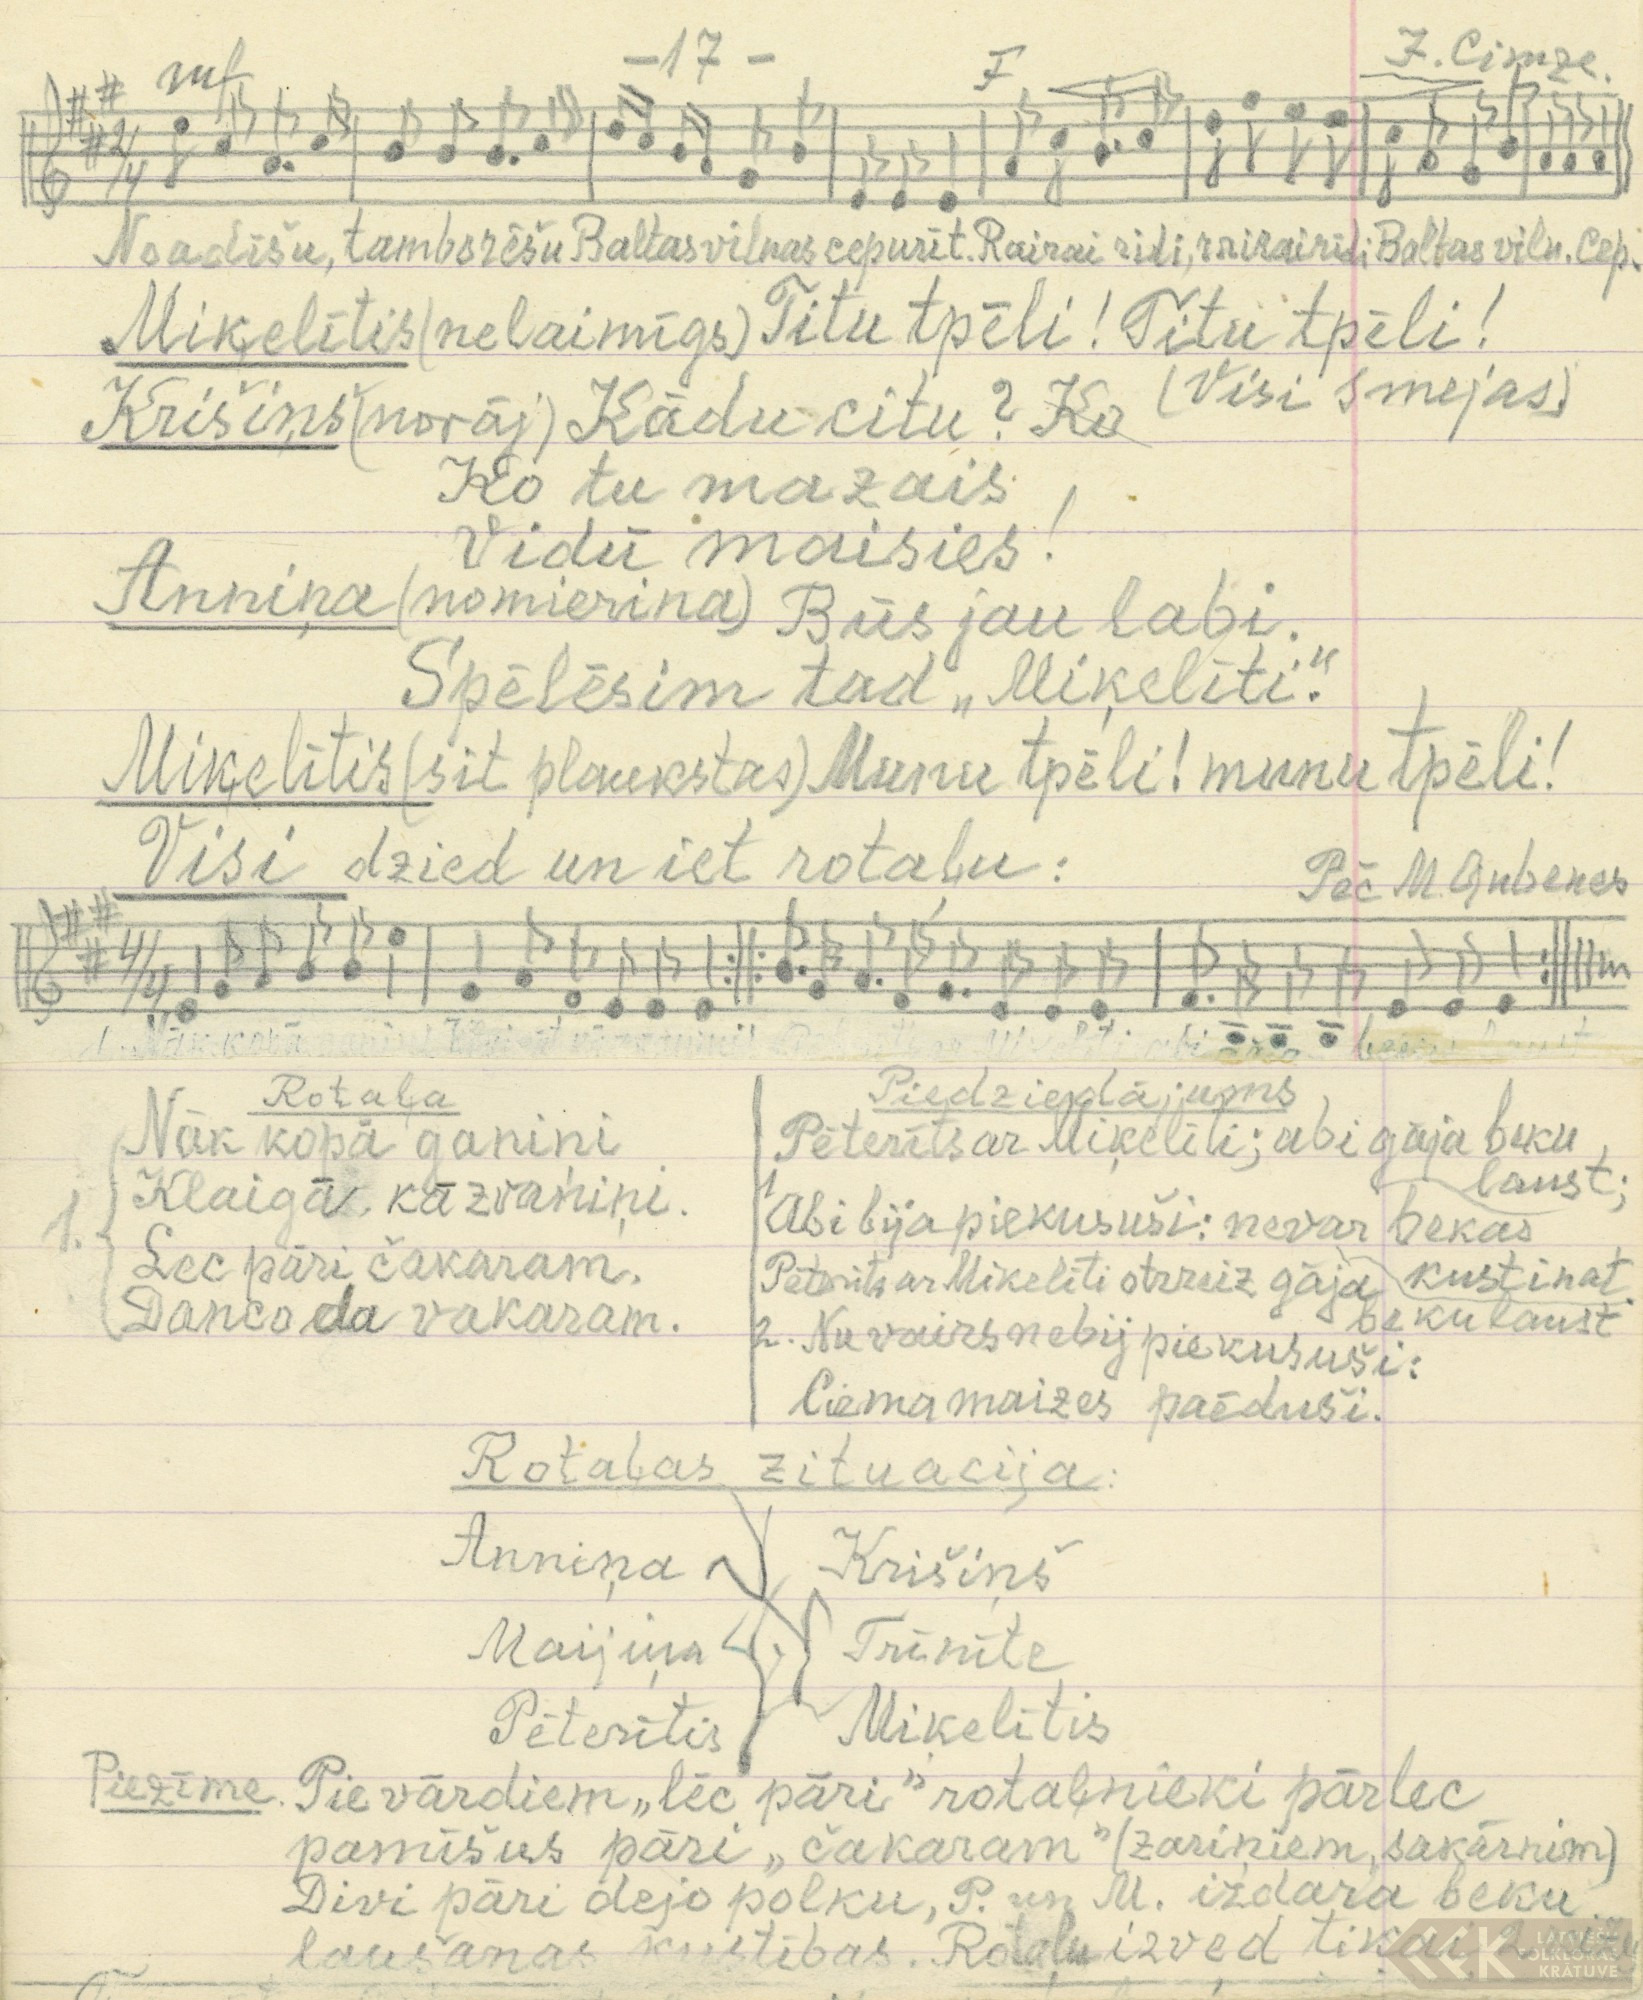 -17-
mf
F
J. Cimze.
2/4
Noadīšu, tamborēšu Baltas vilnas cepurīt. Rairai ridi, rairairidi Baltas viln. Cep.
Miķelītis (nelaimīgs) Titu tpēli! Titu tpēli!
(Visi smejas)
Krišiņš (norāj) Kādu citu? Ko
Ko tu mazais
Vidū maisies!
Anniņa (nomierina) Būs jau labi.
Spēlēsim tad „Miķelīti."
Miķelītis (sit plaukstas) Munu tpēli! munu tpēli!
Visi dzied un iet rotaļu:
Pēc M. Gubenes
4/4
1. Nāk kopā
Rotaļa
Nāk kopā ganiņi
Klaigā kā zvaniņi.
1. Lec pāri čakaram.
Danco da vakaram.
Piedziedājums
Pēterīts ar Miķelīti; abi gāja beku
laust;
1 Abi bija piekususi: nevar bekas
kustināt.
Pēterīts ar Mikelīti otrreiz gāja
beku laust
2. Nu vairs nebij piekususi:
Ciema maizes paēduši.
Rotaļas zituacija:
Anniņa Krišiņš
Maijiņa Trīnīte
Pēterītis Miķelītis
Piezīme. Pie vārdiem „lēc pāri" rotaļnieki pārlec
pamīšus pāri „čakaram" (zariņiem, sakārnim)
Divi pāri dejo polku, P. un M. izdara beku
laušanas kustības. Rotaļu izved tikai 2
LATVIEŠU
FOLKLORAS
KRĀTUVE